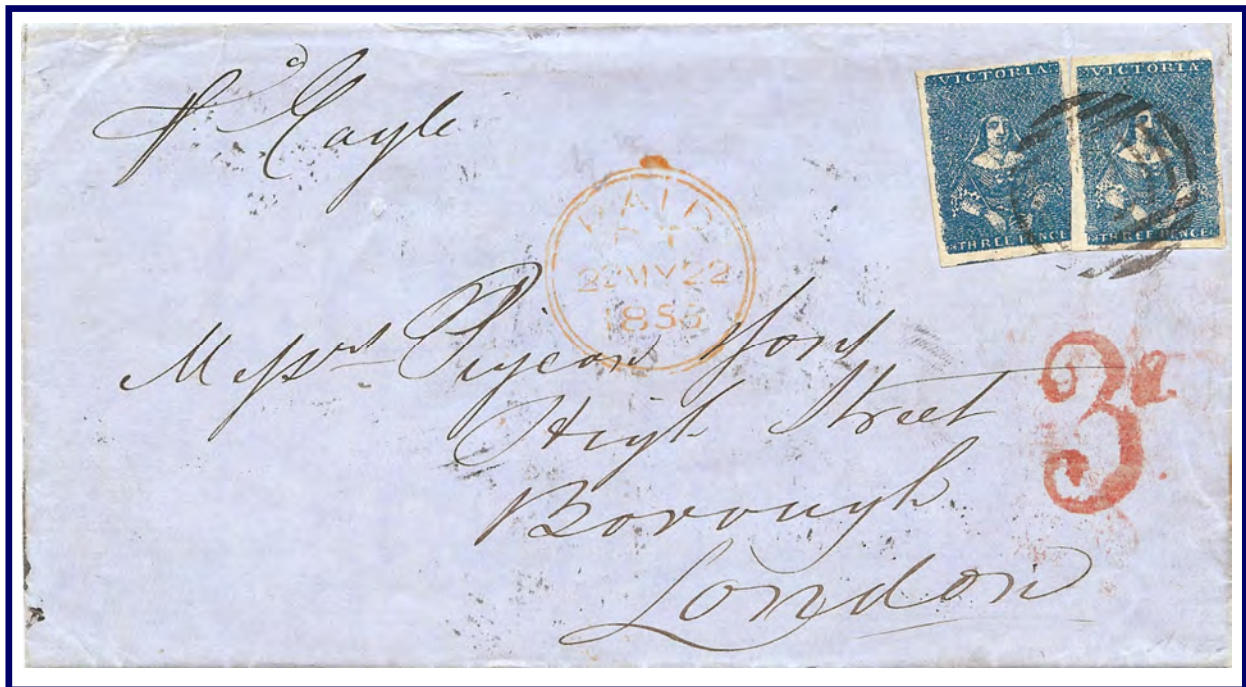 pr Eagle
VICTORIA
THREE PENCE
VICTORIA
THREE PENCE
PAID
22 MY 22
1853
Messrs Pigeon & Sons
High Street
3d
Borough
London